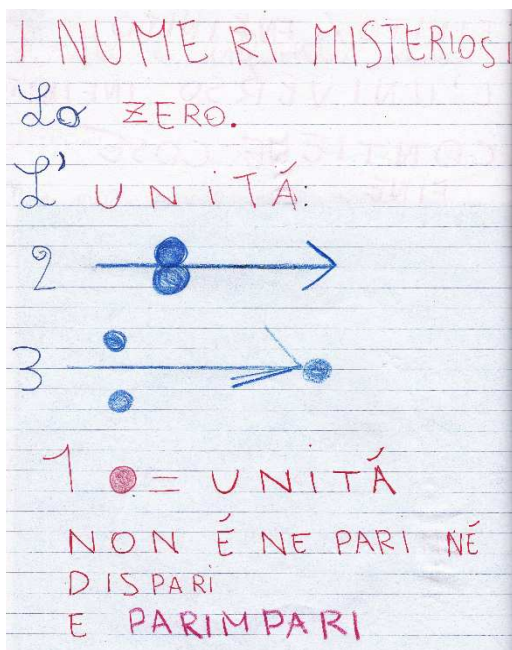 I NUMERI MISTERIOSI
Lo ZERO.
L'UNITÁ:
2
3
1 = UNITÁ
NON É NE PARI NÉ
DISPARI
E PARIMPARI